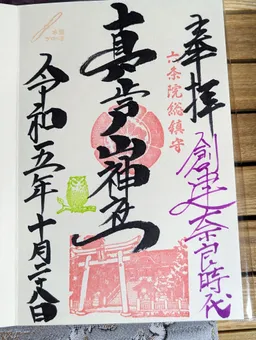 奉拝
創建奈良時代
六条院総鎮守
真止戸山神社
令和五年十月二八日